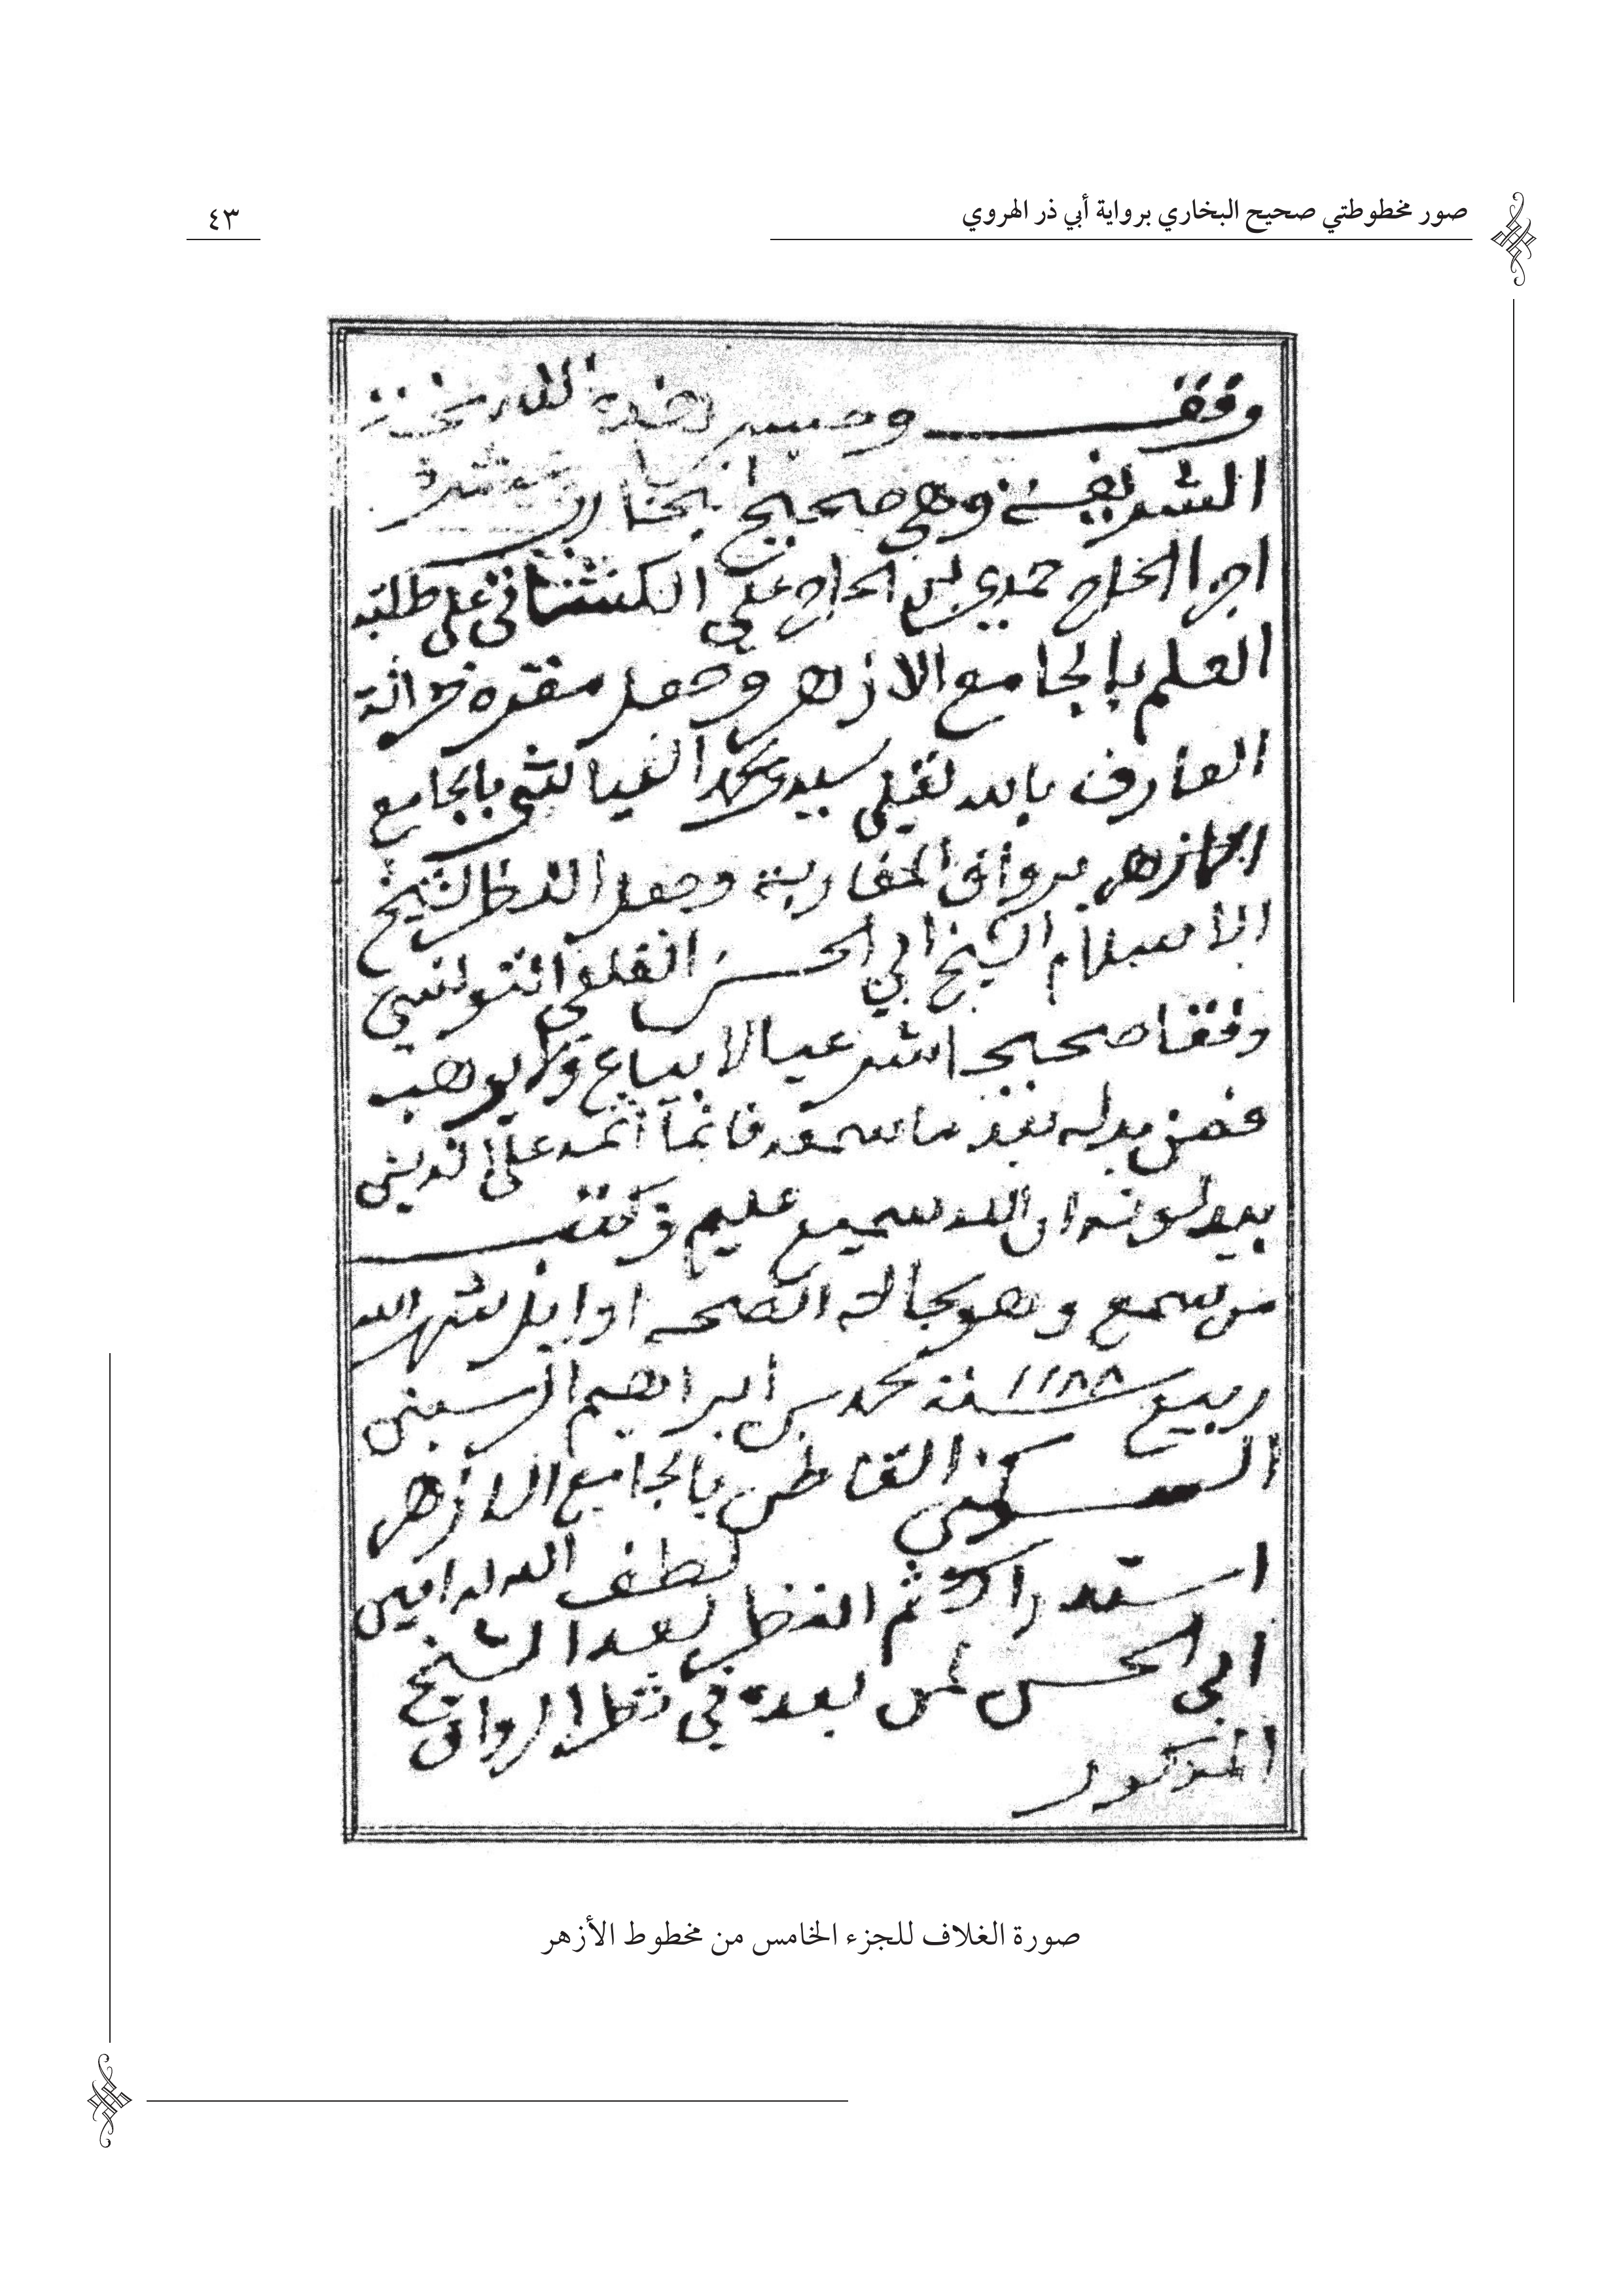 صور مخطوطتي صحيح البخاري برواية أبي ذر الهروي
٤٣
وقف وحبس هذه النسخة
الشريفة وهي صحيح البخاري عشرة
اجزا الحاج حمدي بن الحاج علي على طلبة
العلم بالجامع الازهر وجعل مقره خزانة
العارف بالله تعلي سيدي محمد بالجامع
الازهر برواق المغاربة وجعل النظر لشيخ
الاسلام الشيخ ابي الحسن القلعي التونسي
وقفا صحيحا شرعيا لا يباع ولا يوهب
فمن بدله بعد ما سمعه فانما اثمه على الذين
يبدلونه ان الله سميع عليم وكتب
من سمع وهو بحالة الصحه اوايل شهر الله
ربيع سنة ١١٨٨ محمد بن ابراهيم
القاطن بالجامع الازهر
لطف الله له امين
استدراك ثم النظر بعد الشيخ
ابي الحسن لمن بعده في نظر الرواق
المذكور
صورة الغلاف للجزء الخامس من مخطوط الأزهر